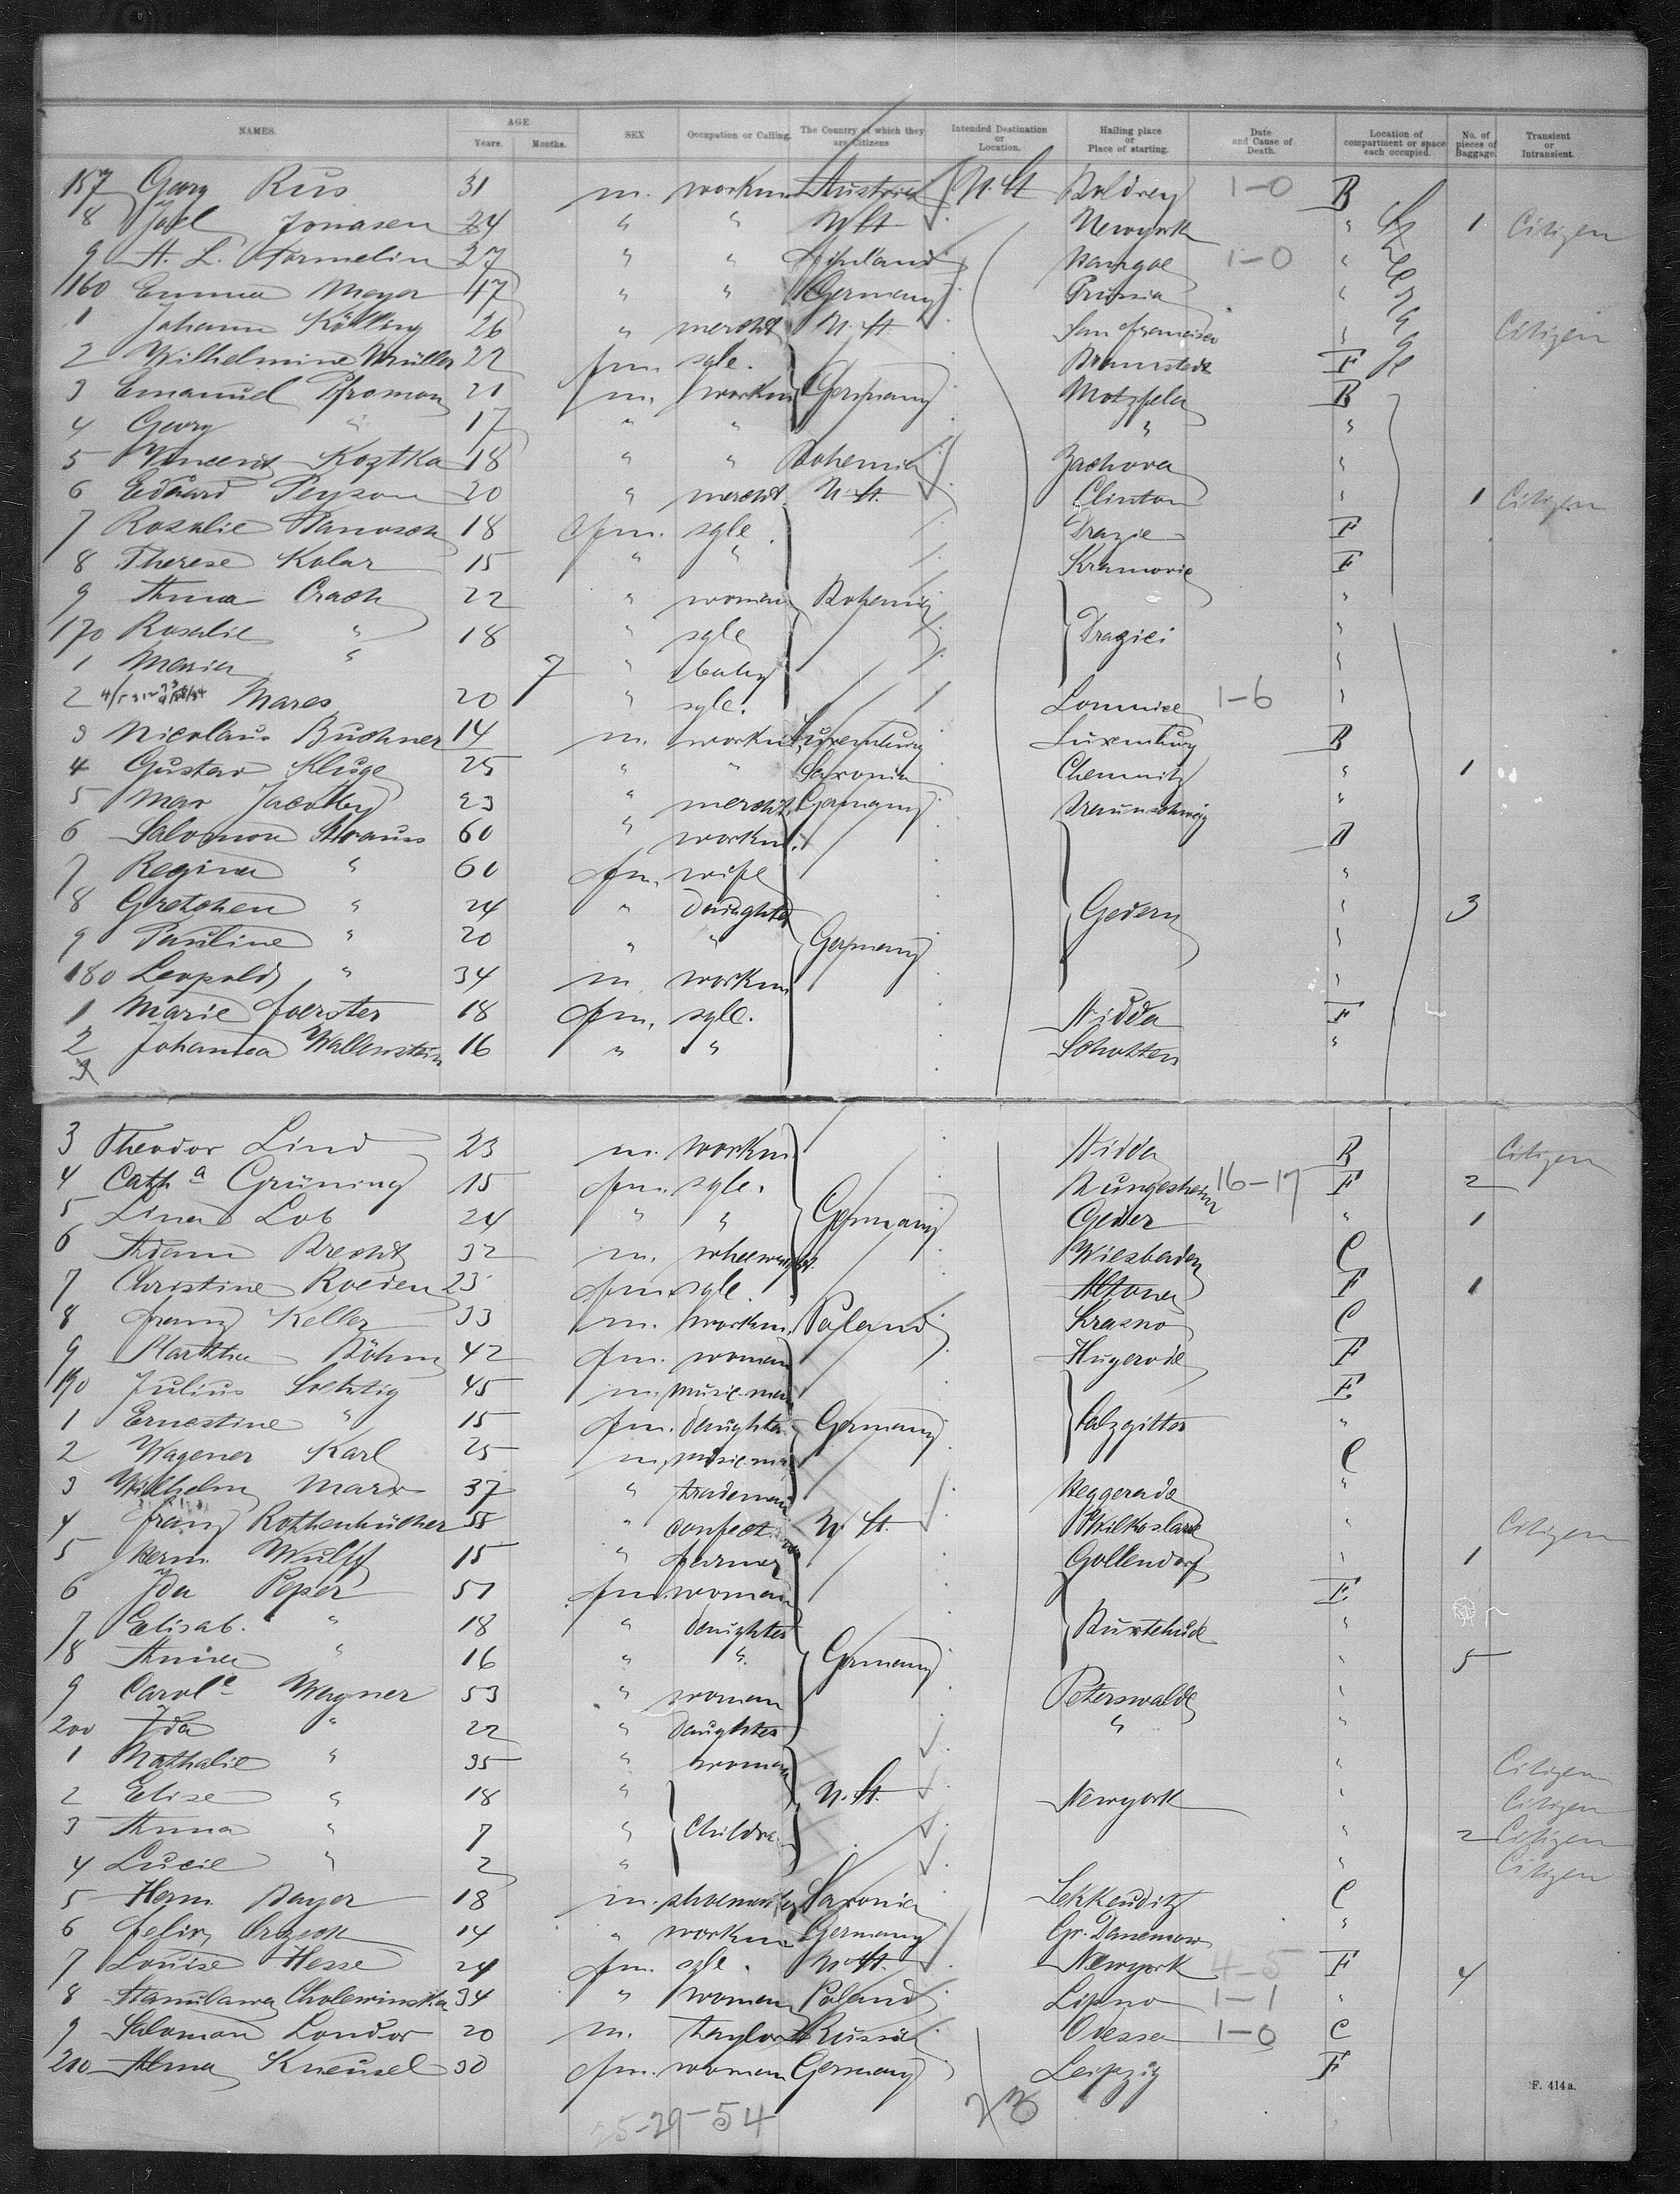 NAMES. AGE SEX Occupation or Calling. The Country of which they are Citizens Intended Destination or Location. Hailing place or Place of starting. Date and Cause of Death. Location of compartment or space each occupied. No. of pieces of Baggage. Transient or Intransient.
Years. Months.
157 Georg Rus 31 m. workm Austria N. St 1-0 B
8 Jonasen 24 " " N St Newyork " 1 Citizen
9 A. L. 27 " " Finland 1-0 "
160 Emma Meyer 47 " " Germany Prussia "
1 Johann Kölling 26 " mercht N. St. San Francisco " Citizen
2 Wilhelmine Müller 22 fm. sgle. Bramstedt F
3 Emanuel 21 m. workm Germany B
4 Georg " 17 " " " "
5 Vincent Koztka 18 " " Bohemia Zachova "
6 Eduard 20 " mercht. N. St. Clinton " 1 Citizen
7 Rosalie 18 fm. sgle. F
8 Therese Kolar 15 " " F
9 Anna 22 " woman Bohemia "
170 Rosalie " 18 " sgle Drazici "
1 Maria " 7 " baby "
2 Mares 20 " sgle. Lomnice 1-6 "
3 Nicolaus Buchner 14 m. workm Luxemburg Luxemburg B
4 Gustav Kluge 25 " " Saxonia Chemnitz " 1
5 Max Jacoby 23 " mercht. Germany Braunschweig "
6 Salomon Strauss 60 " workm.
7 Regina " 60 fm. wife "
8 Gretchen " 24 " daughter Gedern " 3
9 Pauline " 20 " " Germany "
180 Leopold " 34 m. workm "
1 Marie Foerster 18 fm. sgle. Nidda F
2 Johanna Wallenstein 16 " " Schotten "
3
3 Theodor Lind 23 m. workm Nidda B Citizen
4 Cath a Grüning 15 fm. sgle. 16-17 F 2
5 Lina Lob 24 " " Germany Geder " 1
6 Adam Brecht 32 m. wheelwright. Wiesbaden C
7 Christine Roeden 23 fm. sgle. Altona F 1
8 Franz Keller 33 m. workm. Poland Krasno C
9 Martha Böhm 42 fm. woman Hugerode F
190 Julius 45 m. music-man E
1 Ernestine " 15 fm. daughter Germany Salzgitter "
2 Wagener Karl 25 m. music-man C
3 Wilhelm Marx 37 " trademan "
4 Franz Rothenbücher 55 " N. St. " Citizen
5 Herm. Wulff 15 " farmer Gollendorf " 1
6 Ida Peper 51 fm. woman E
7 Elisab. " 18 " daughter Buxtehude "
8 " 16 " " Germany " 5
9 Carole Wagner 53 " woman Peterswalde "
200 Ida " 22 " daughter " "
1 Nathalie " 35 " woman " Citizen
2 Elise " 18 " N. St. Newyork " Citizen
3 Anna " 7 " Childre " 2 Citizen
4 Lucie " 2 " " Citizen
5 Herm. 18 m. shoemaker Saxonia C
6 Felix 14 " workm Germany Gr. "
7 Louise Hesse 24 fm. sgle. N. St. Newyork 4-5 F
8 Stanislawa Cholewinska 34 " woman Poland Lipno 1-1 " 4
9 Salomon Londor 20 m. taylor Russia Odessa 1-0 C
210 Alma Kneusel 30 fm. woman Germany Leipzig F
F. 414a.
25-29-54